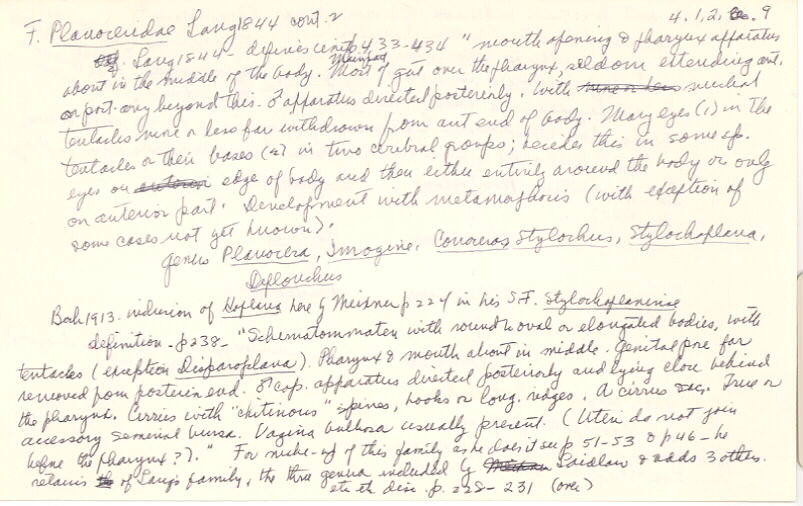 F. Planoceridae Lang 1844 cont. 2 4.1.2. 9
Lang 1844 - defines p 433-434 "mouth opening & pharynx apparatus
about in the middle of the body. Most of gut over the pharynx, seldom extending ant.
or post. beyond this. ♂ apparatus directed posteriorly. With nuchal
tentacles more or less far withdrawn from ant end of body. Many eyes (1) in the
tentacles or their bases (2) in two cerebral groups; besides this in some sp.
eyes on edge of body and then either entirely around the body or only
on anterior part. Development with metamorphosis (with exception of
some cases not yet known).
genus Planocera, Imogine, Conoceros, Stylochus, Stylochoplana,
Diplonchus
Bock 1913. inclusion of Hoplana here by Meixner p 224 in his S.F. Stylochoplaninae
definition - p 238 - "Schematommaten with round oval or elongated bodies, with
tentacles (exception Disparoplana). Pharynx & mouth about in middle. Genital pore far
removed from posterior end. ♂ cop. apparatus directed posteriorly and lying close behind
the pharynx. Cirrus with "chitinous" spines, hooks or long. ridges. A cirrus sac. True or
accessory seminal vesicle. Vagina bulbosa usually present. (Uteri do not join
before the pharynx?)." For make-up of this family as he does it see p 51-53 & p 46 - he
retains of Lang's family, the three genera included by Laidlaw & adds 3 others.
etc etc disc. p. 228-231 (over)